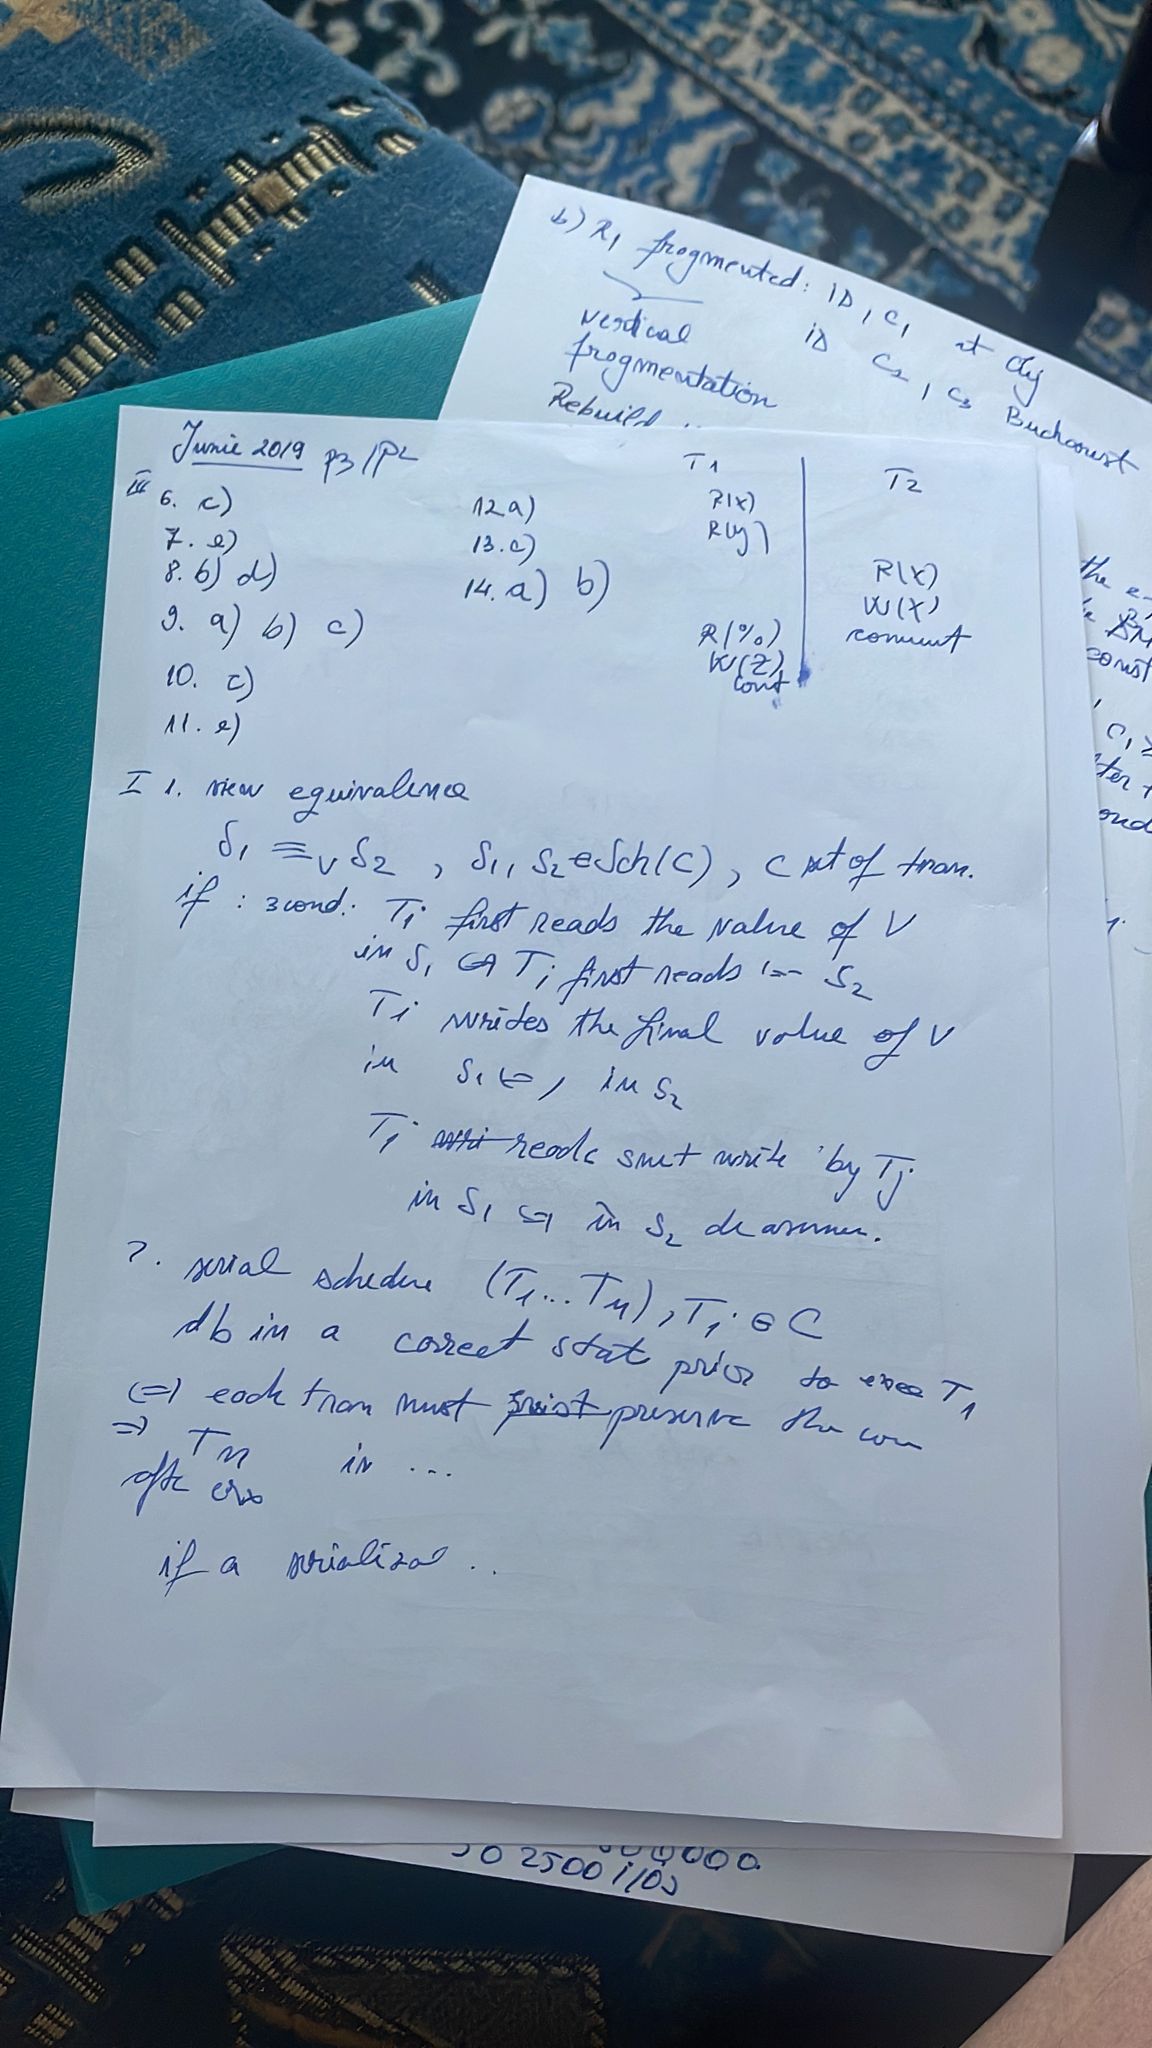 b) R1 fragmented: ID, C1 at Cluj
ID C2, C3 Bucharest
vertical
fragmentation
Rebuild
Junie 2019 P3/P2
III
6. c)
7. e)
8. b) d)
9. a) b) c)
10. c)
11. e)
12 a)
13. c)
14. a) b)
T1 T2
R(x)
R(y)
R(X)
W(X)
commit
R(%)
W(Z)
cont
I 1. view equivalence
S1 ≡v S2 , S1, S2 ∈ Sch(C), C set of tran.
if : 3 cond: Ti first reads the value of V
in S1 ⇔ Ti first reads in S2
Ti writes the final value of V
in S1 ⇔ in S2
Ti reads smt write by Tj
in S1 ⇔ in S2 de asemen.
2. serial schedule (T1...Tn), Ti ∈ C
db in a correct stat prior to exec T1
(=) each tran must preserve the con
=> Tn in ...
aft exe
if a serializa ..
the
const
C1
02500 1/0s